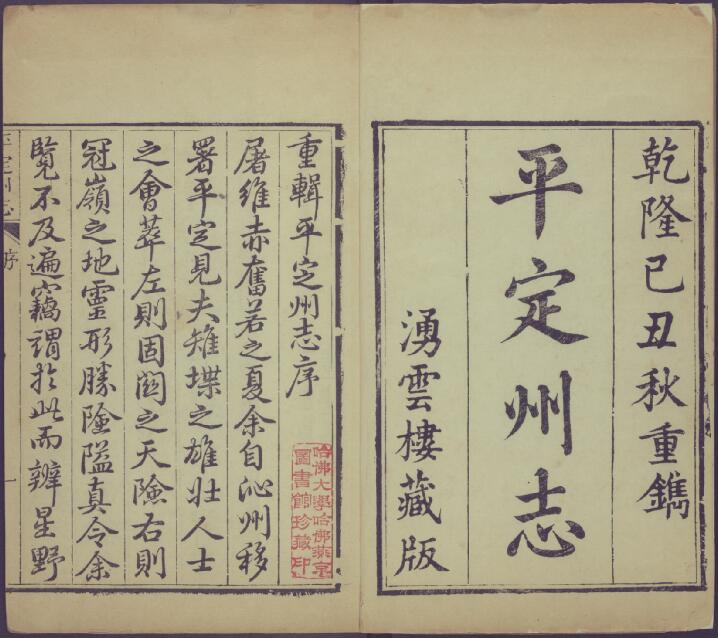 乾隆己丑秋重鐫
平定州志
湧雲樓藏版
重輯平定州志序
屠維赤奮若之夏余自沁州移
署平定見夫雉堞之雄壯人士
之會萃左則固關之天險右則
冠嶺之地靈形勝險隘真令余
覽不及遍竊謂於此而辨星野
哈佛大學哈佛燕京
圖書館珍藏印
平定州志
序
一